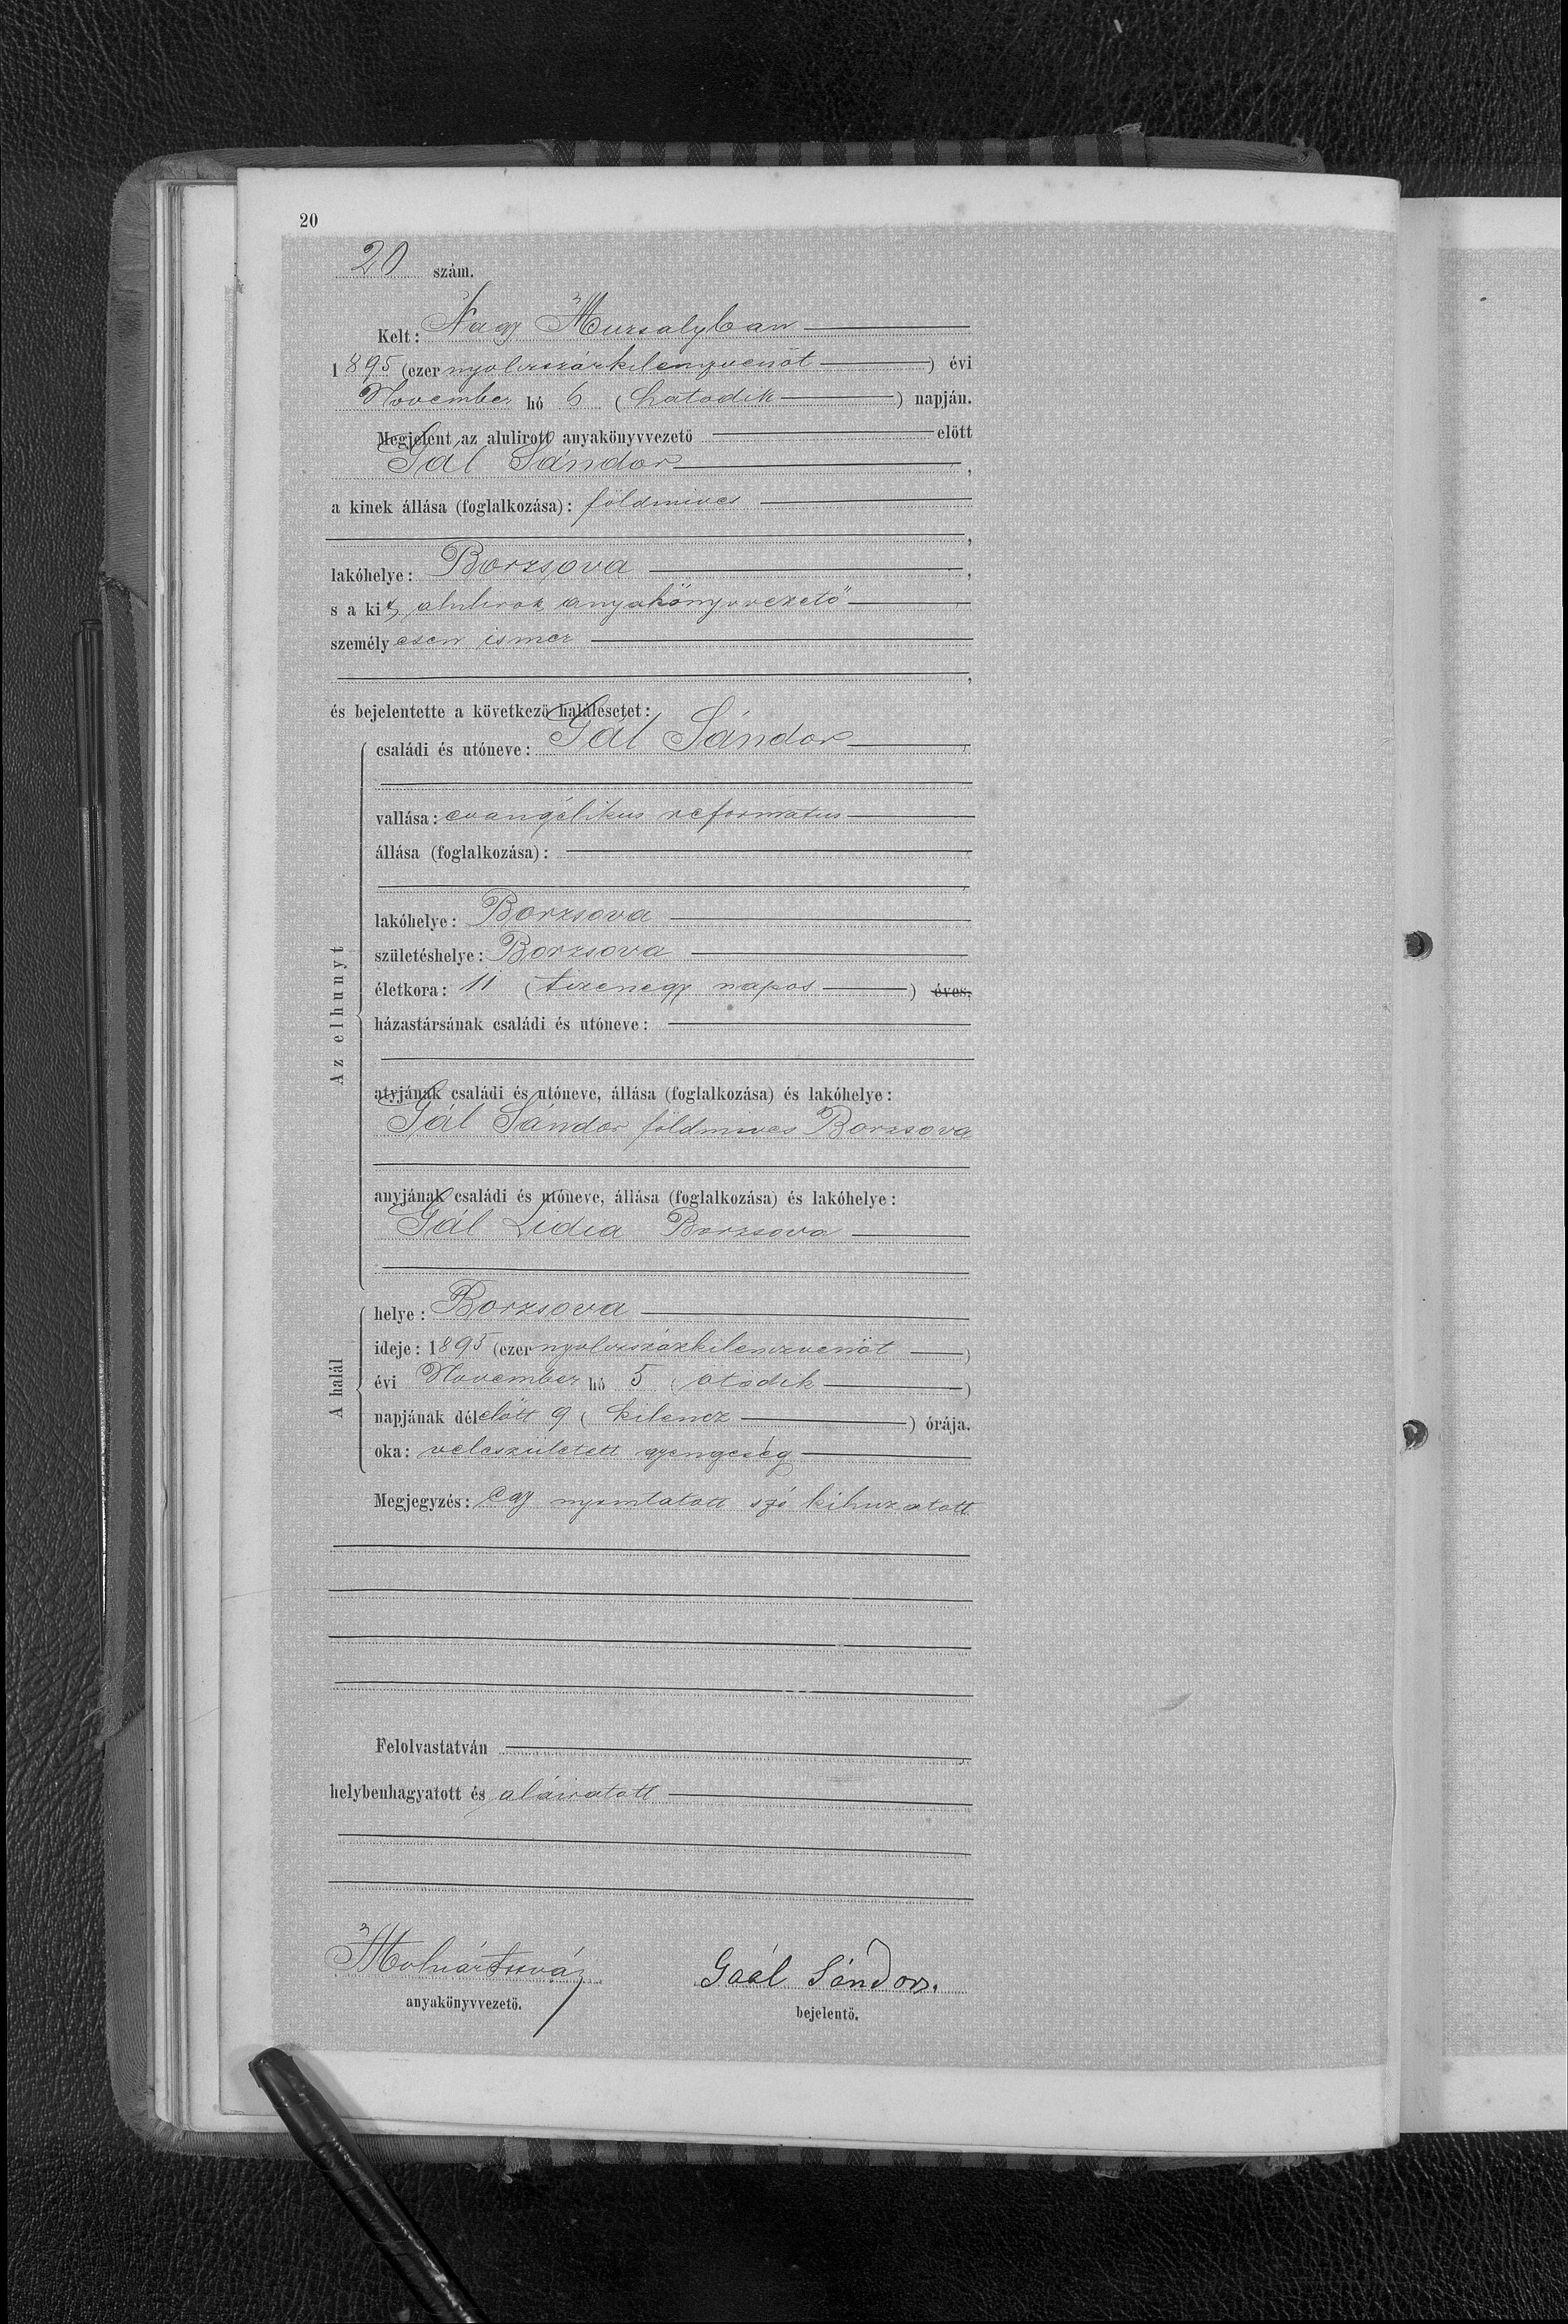 20
20 szám.
Kelt: Nagy Muzsalyban
1895 (ezer nyolczszázkilenczvenöt) évi
November hó 6 (hatodik) napján.
Megjelent az alulirott anyakönyvvezető előtt
Gál Sándor,
a kinek állása (foglalkozása): földmives
,
lakóhelye: Borzsova,
s a kit alulirot anyakönyvvezető
személyesen ismer
,
és bejelentette a következő halálesetet:
Az elhunyt
családi és utóneve: Gál Sándor
vallása: evangélikus református
állása (foglalkozása):
lakóhelye: Borzsova
születéshelye: Borzsova
életkora: 11 (tizenegy napos) éves.
házastársának családi és utóneve:
atyjának családi és utóneve, állása (foglalkozása) és lakóhelye:
Gál Sándor földmives Borzsova
anyjának családi és utóneve, állása (foglalkozása) és lakóhelye:
Gál Lidia Borzsova
A halál
helye: Borzsova
ideje: 1895 (ezer nyolczszázkilenczvenöt)
évi November hó 5 (ötödik)
napjának délelőtt 9 (kilencz) órája.
oka: veleszületett gyengeség
Megjegyzés: egy nyomtatott szó kihuzatott
Felolvastatván
helybenhagyatott és aláiratott
Molnár Gaál Sándor.
anyakönyvvezető. bejelentő.